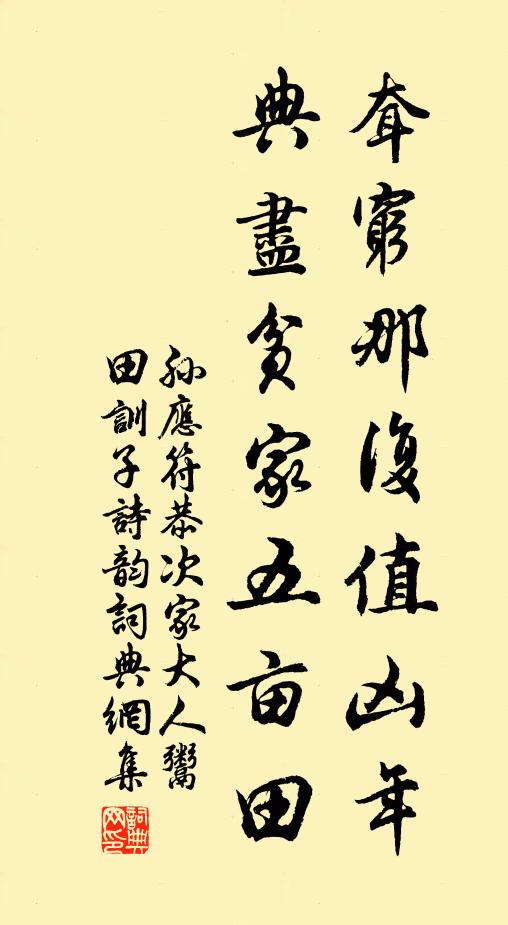 耷窮那復值凶年
典盡貧家五亩田
孫應符恭次家大人鬻
田訓子詩韵詞典網集
詞典网印